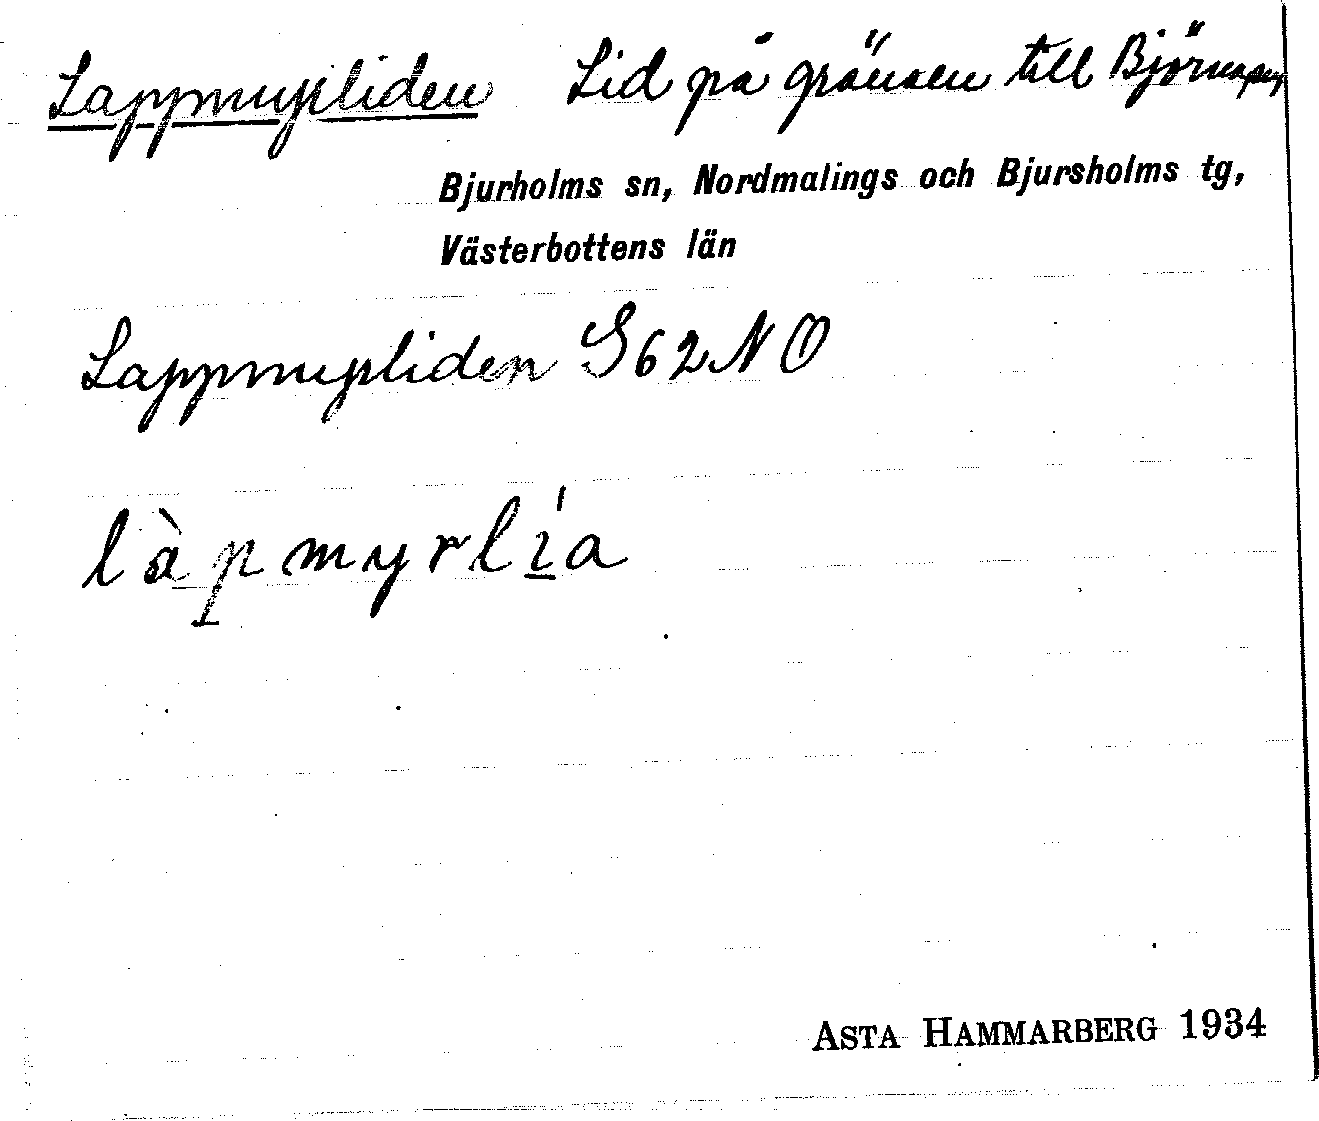 Lappmyrliden Lid på gränsen till
Bjurholms sn, Nordmalings och Bjursholms tg,
Västerbottens län
Lappmyrliden S62NO
làpmyrlía
ASTA HAMMARBERG 1934